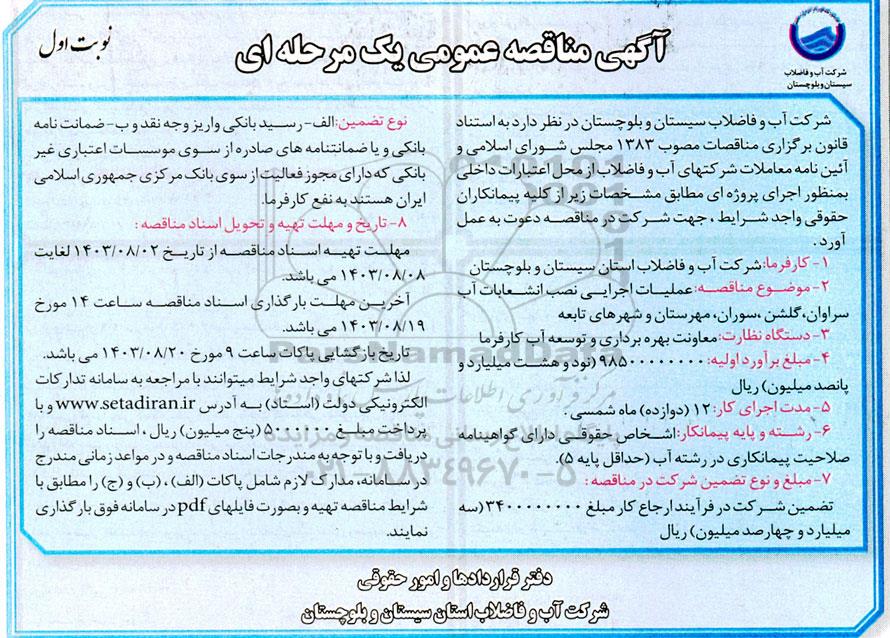 آگهی مناقصه عمومی یک مرحله ای
نوبت اول
شرکت آب و فاضلاب
سیستان و بلوچستان
شرکت آب و فاضلاب سیستان و بلوچستان در نظر دارد به استناد
قانون برگزاری مناقصات مصوب ۱۳۸۳ مجلس شورای اسلامی و
آئین نامه معاملات شرکتهای آب و فاضلاب از محل اعتبارات داخلی
بمنظور اجرای پروژه ای مطابق مشخصات زیر از کلیه پیمانکاران
حقوقی واجد شرایط ، جهت شرکت در مناقصه دعوت به عمل
آورد .
۱- کارفرما: شرکت آب و فاضلاب استان سیستان و بلوچستان
۲- موضوع مناقصه: عملیات اجرایی نصب انشعابات آب
سراوان، گلشن ،سوران، مهرستان و شهرهای تابعه
۳- دستگاه نظارت: معاونت بهره برداری و توسعه آب کارفرما
۴- مبلغ برآورد اولیه: ۹۸۵۰۰۰۰۰۰۰۰ (نود و هشت میلیارد و
پانصد میلیون) ریال
۵- مدت اجرای کار: ۱۲ (دوازده) ماه شمسی .
۶- رشته و پایه پیمانکار: اشخاص حقوقی دارای گواهینامه
صلاحیت پیمانکاری در رشته آب (حداقل پایه ۵).
۷- مبلغ و نوع تضمین شرکت در مناقصه :
تضمین شرکت در فرآیند ارجاع کار مبلغ ۳۴۰۰۰۰۰۰۰۰ (سه
میلیارد و چهارصد میلیون) ریال
نوع تضمین: الف- رسید بانکی واریز وجه نقد و ب- ضمانت نامه
بانکی و یا ضمانتنامه های صادره از سوی موسسات اعتباری غیر
بانکی که دارای مجوز فعالیت از سوی بانک مرکزی جمهوری اسلامی
ایران هستند به نفع کارفرما.
۸- تاریخ و مهلت تهیه و تحویل اسناد مناقصه :
مهلت تهیه اسناد مناقصه از تاریخ ۱۴۰۳/۰۸/۰۲ لغایت
۱۴۰۳/۰۸/۰۸ می باشد.
آخرین مهلت بارگذاری اسناد مناقصه ساعت ۱۴ مورخ
۱۴۰۳/۰۸/۱۹ می باشد.
تاریخ بازگشایی پاکات ساعت ۹ مورخ ۱۴۰۳/۰۸/۲۰ می باشد.
لذا شرکتهای واجد شرایط میتوانند با مراجعه به سامانه تدارکات
الکترونیکی دولت (استاد) به آدرس www.setadiran.ir و با
پرداخت مبلغ ۵۰۰۰۰۰۰ (پنج میلیون) ریال ، اسناد مناقصه را
دریافت و با توجه به مندرجات اسناد مناقصه و در مواعد زمانی مندرج
در سامانه، مدارک لازم شامل پاکات (الف) ، (ب) و (ج) را مطابق با
شرایط مناقصه تهیه و بصورت فایلهای pdf در سامانه فوق بارگذاری
نمایند.
دفتر قراردادها و امور حقوقی
شرکت آب و فاضلاب استان سیستان و بلوچستان
ParsNamadData
۰۲۱-۸۸۳۴۹۶۷۰-۵